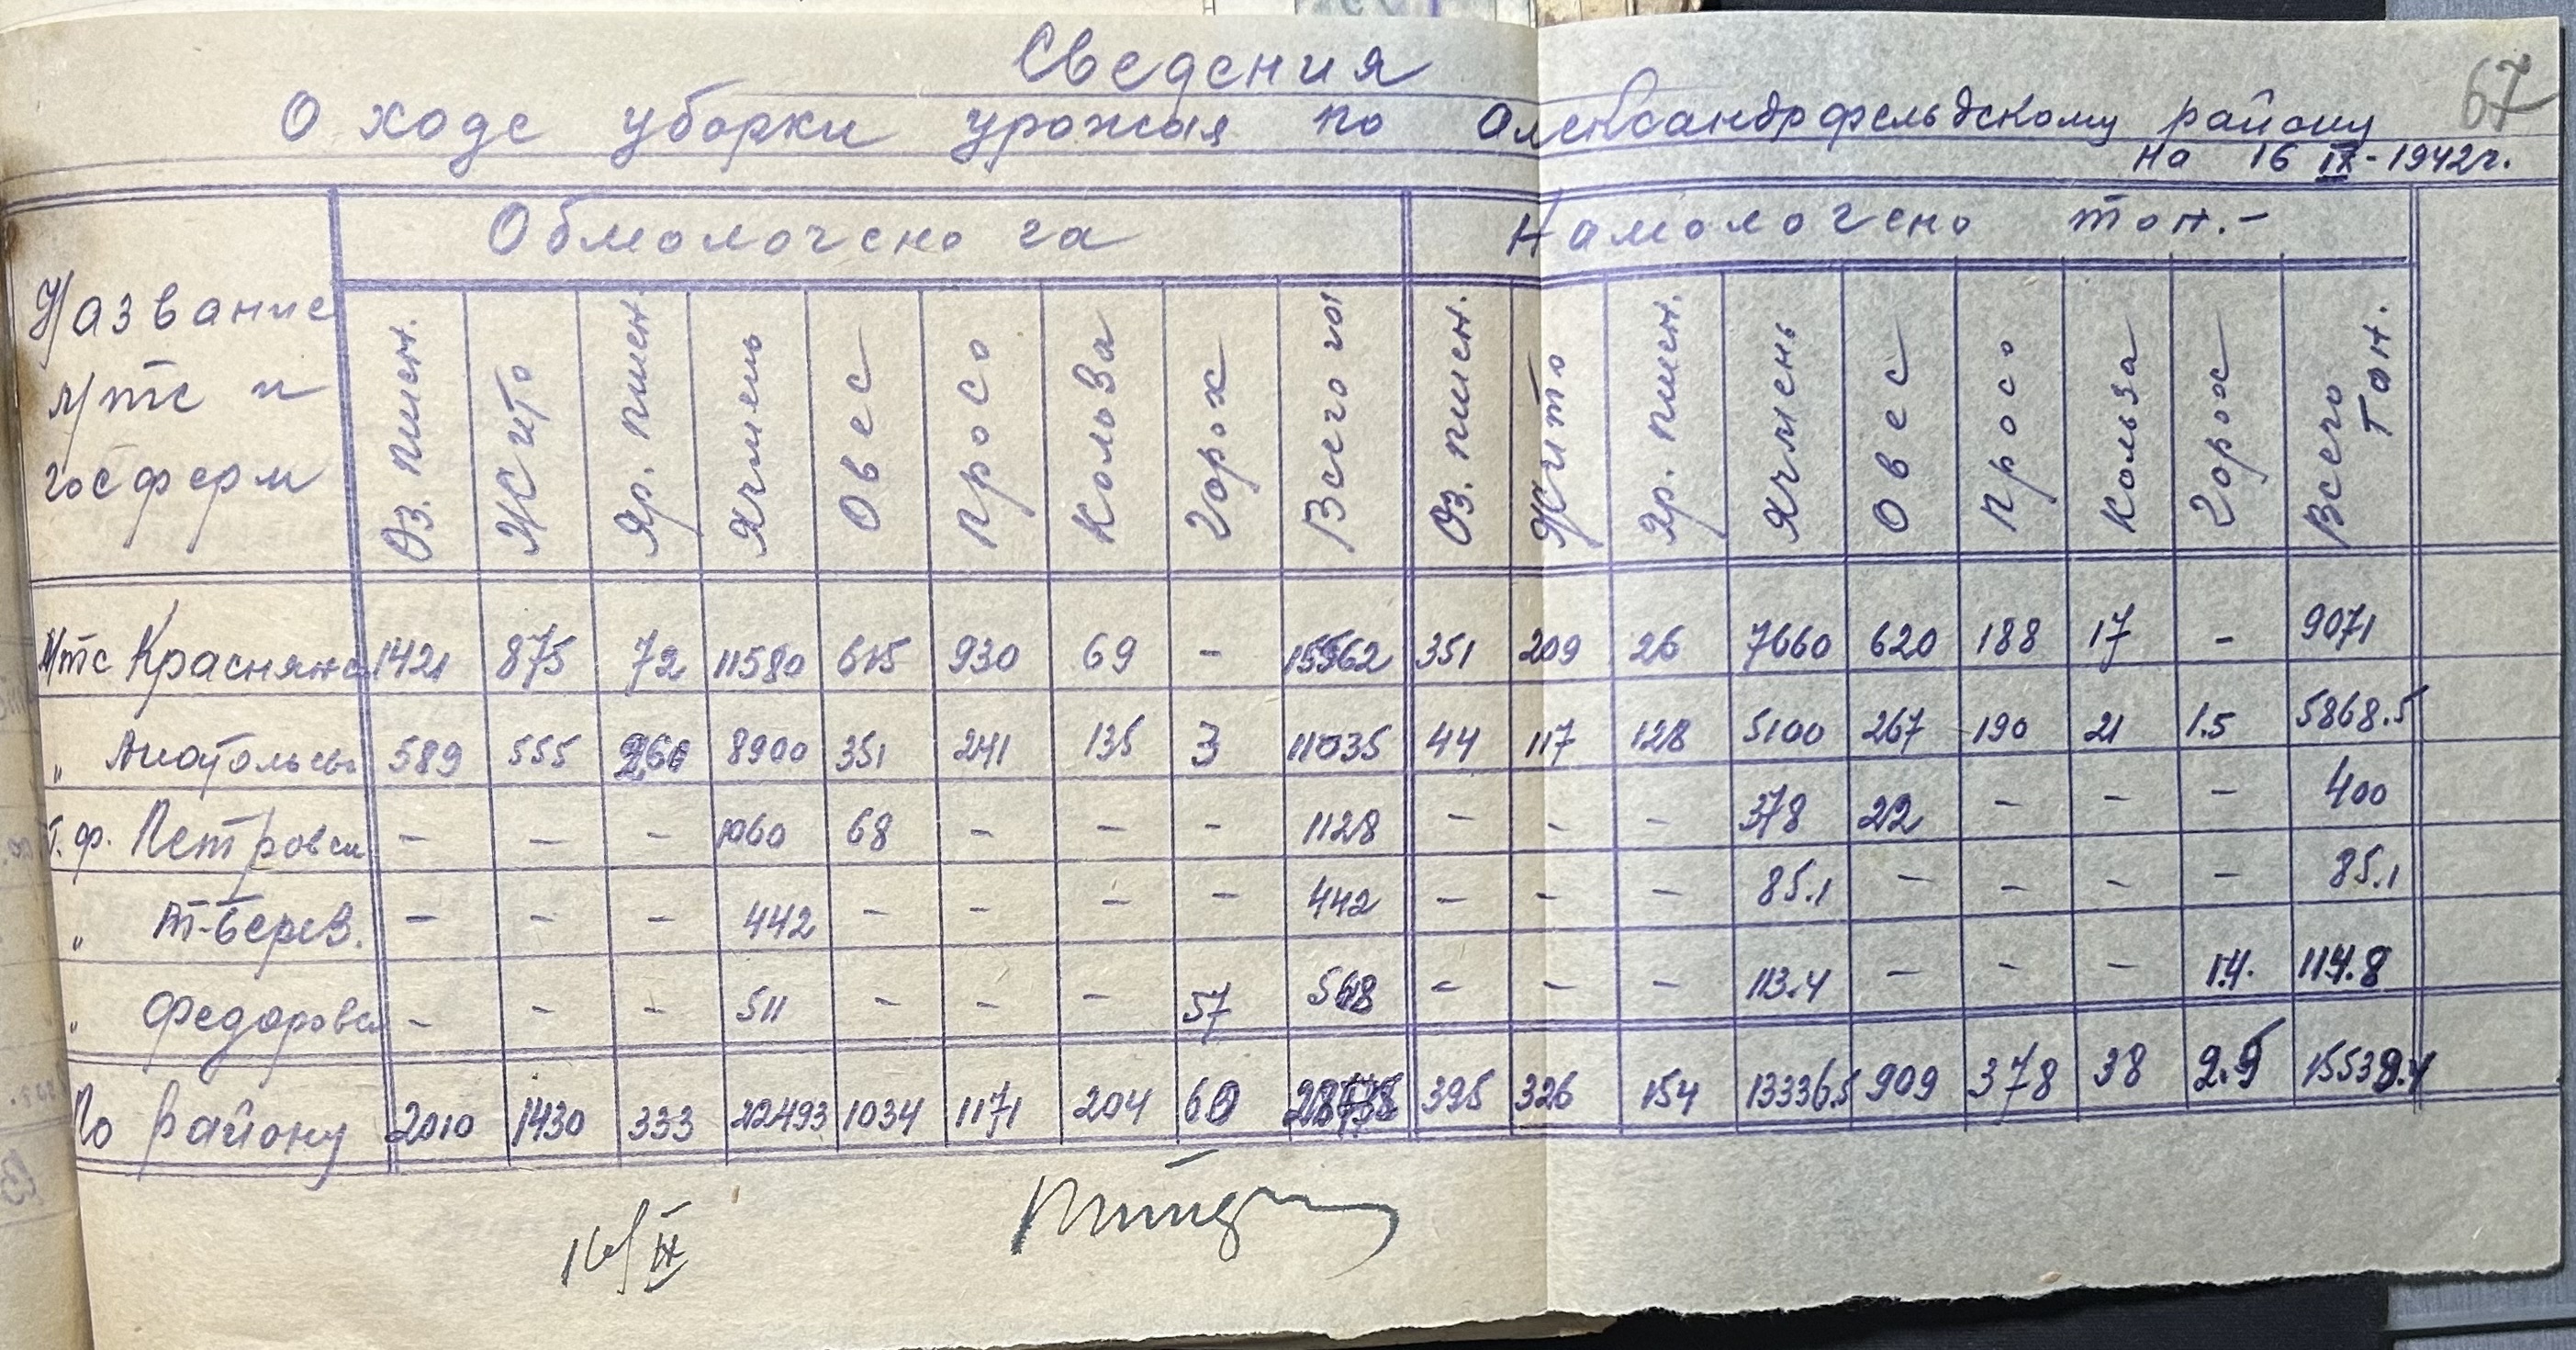 67
Сведения
О ходе уборки урожая по Александрфельдскому району
на 16 IX-1942г.
Название мтс и госферм | Обмолочено га | Намолочено тон.-
Оз. пшен. | Жито | Яр. пшен. | Ячмень | Овес | Просо | Кольза | Горох | Всего га | Оз. пшен. | Жито | Яр. пшен. | Ячмень | Овес | Просо | Кольза | Горох | Всего Тон.
Мтс Краснянс | 1421 | 875 | 72 | 11580 | 615 | 930 | 69 | - | 15562 | 351 | 209 | 26 | 7660 | 620 | 188 | 17 | - | 9071
" Анатольевс | 589 | 555 | 260 | 8900 | 351 | 241 | 135 | 3 | 11035 | 44 | 117 | 128 | 5100 | 267 | 190 | 21 | 1.5 | 5868.5
Г. ф. Петровск | - | - | - | 1060 | 68 | - | - | - | 1128 | - | - | - | 378 | 22 | - | - | - | 400
" Т-Берез. | - | - | - | 442 | - | - | - | - | 442 | - | - | - | 85.1 | - | - | - | - | 85.1
" Федоровск | - | - | - | 511 | - | - | - | 57 | 568 | - | - | - | 113.4 | - | - | - | 1.4. | 114.8
По району | 2010 | 1430 | 333 | 22493 | 1034 | 1171 | 204 | 60 | 395 | 326 | 154 | 13336.5 | 909 | 378 | 38 | 2.9 | 15539.4
16/IX